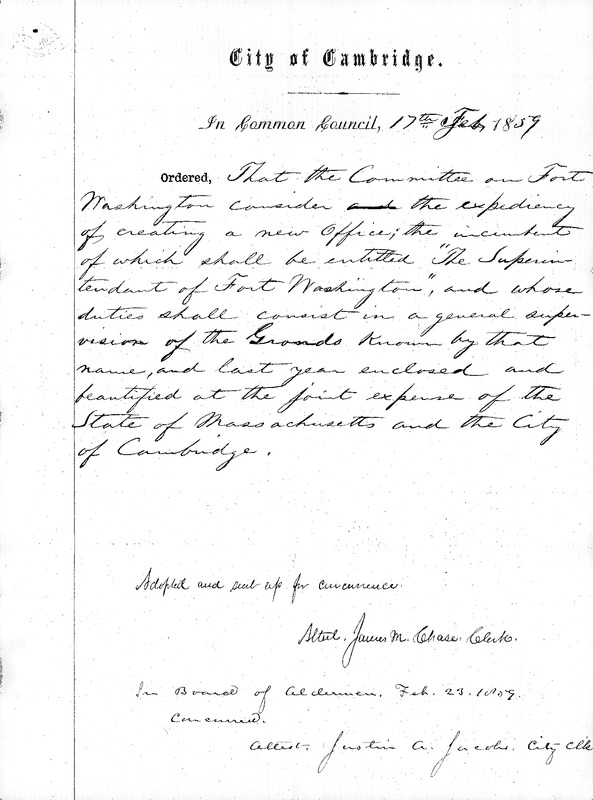 City of Cambridge.
In Common Council, 17th Feb 1859
Ordered, That the Committee on Fort
Washington consider and the expediency
of creating a new Office; the incumbent
of which shall be entitled "The Superin-
tendant of Fort Washington", and whose
duties shall consist in a general super-
vision of the Gronds known by that
name, and last year enclosed and
beautified at the joint expense of the
State of Massachusetts and the City
of Cambridge.
Adopted and sent up for concurrence.
Attest. James M. Chase. Clerk.
In Board of Aldermen, Feb. 23. 1859.
Concurred.
Attest, Justin A. Jacobs. City Clk